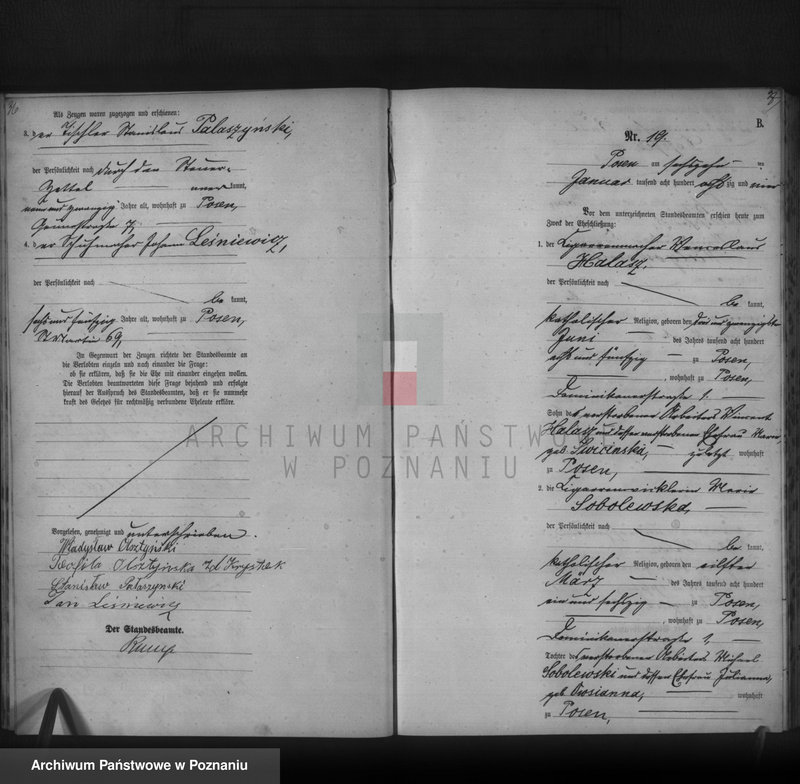 36
Als Zeugen waren zugezogen und erschienen:
3. der Tischler Stanislaus Palaszyński,
der Persönlichkeit nach durch den Steuer-
Zettel kannt,
neun und zwanzig Jahre alt, wohnhaft zu Posen,
4. der Schuhmacher Johann Leśniewicz,
der Persönlichkeit nach
be kannt,
sechs und fünfzig Jahre alt, wohnhaft zu Posen,
69,
In Gegenwart der Zeugen richtete der Standesbeamte an
die Verlobten einzeln und nach einander die Frage:
ob sie erklären, daß sie die Ehe mit einander eingehen wollen.
Die Verlobten beantworteten diese Frage bejahend und erfolgte
hierauf der Ausspruch des Standesbeamten, daß er sie nunmehr
kraft des Gesetzes für rechtmäßig verbundene Eheleute erkläre.
Vorgelesen, genehmigt und unterschrieben.
Władysław Olsztyński
Teofila Olsztyńska
Stanisław Palaszynski
Jan Leśniewicz
Der Standesbeamte.
37
B.
Nr. 19.
Posen am sechszehn ten
Januar tausend acht hundert acht zig und vier
Vor dem unterzeichneten Standesbeamten erschien heute zum
Zweck der Eheschließung:
1. der Cigarrenmacher Wenceslaus
Halasz,
der Persönlichkeit nach
be kannt,
katholischer Religion, geboren den drei und zwanzigsten
Juni des Jahres tausend acht hundert
acht und fünfzig zu Posen,
, wohnhaft zu Posen,
Dominikanerstraße 1,
Sohn des verstorbenen Arbeiters Vincent
Halasz und dessen verstorbenen Ehefrau
geb. zuletzt wohnhaft
zu Posen,
2. die Cigarrenwicklerin Marie
Sobolewska,
der Persönlichkeit nach
be kannt,
katholischer Religion, geboren den eilften
März des Jahres tausend acht hundert
ein und sechszig zu Posen,
, wohnhaft zu Posen,
Dominikanerstraße 1,
Tochter des verstorbenen Arbeiters Michael
Sobolewski und dessen Ehefrau Julianna,
geb. wohnhaft
zu Posen,
ARCHIWUM PAŃSTWOWE
W POZNANIU
Archiwum Państwowe w Poznaniu